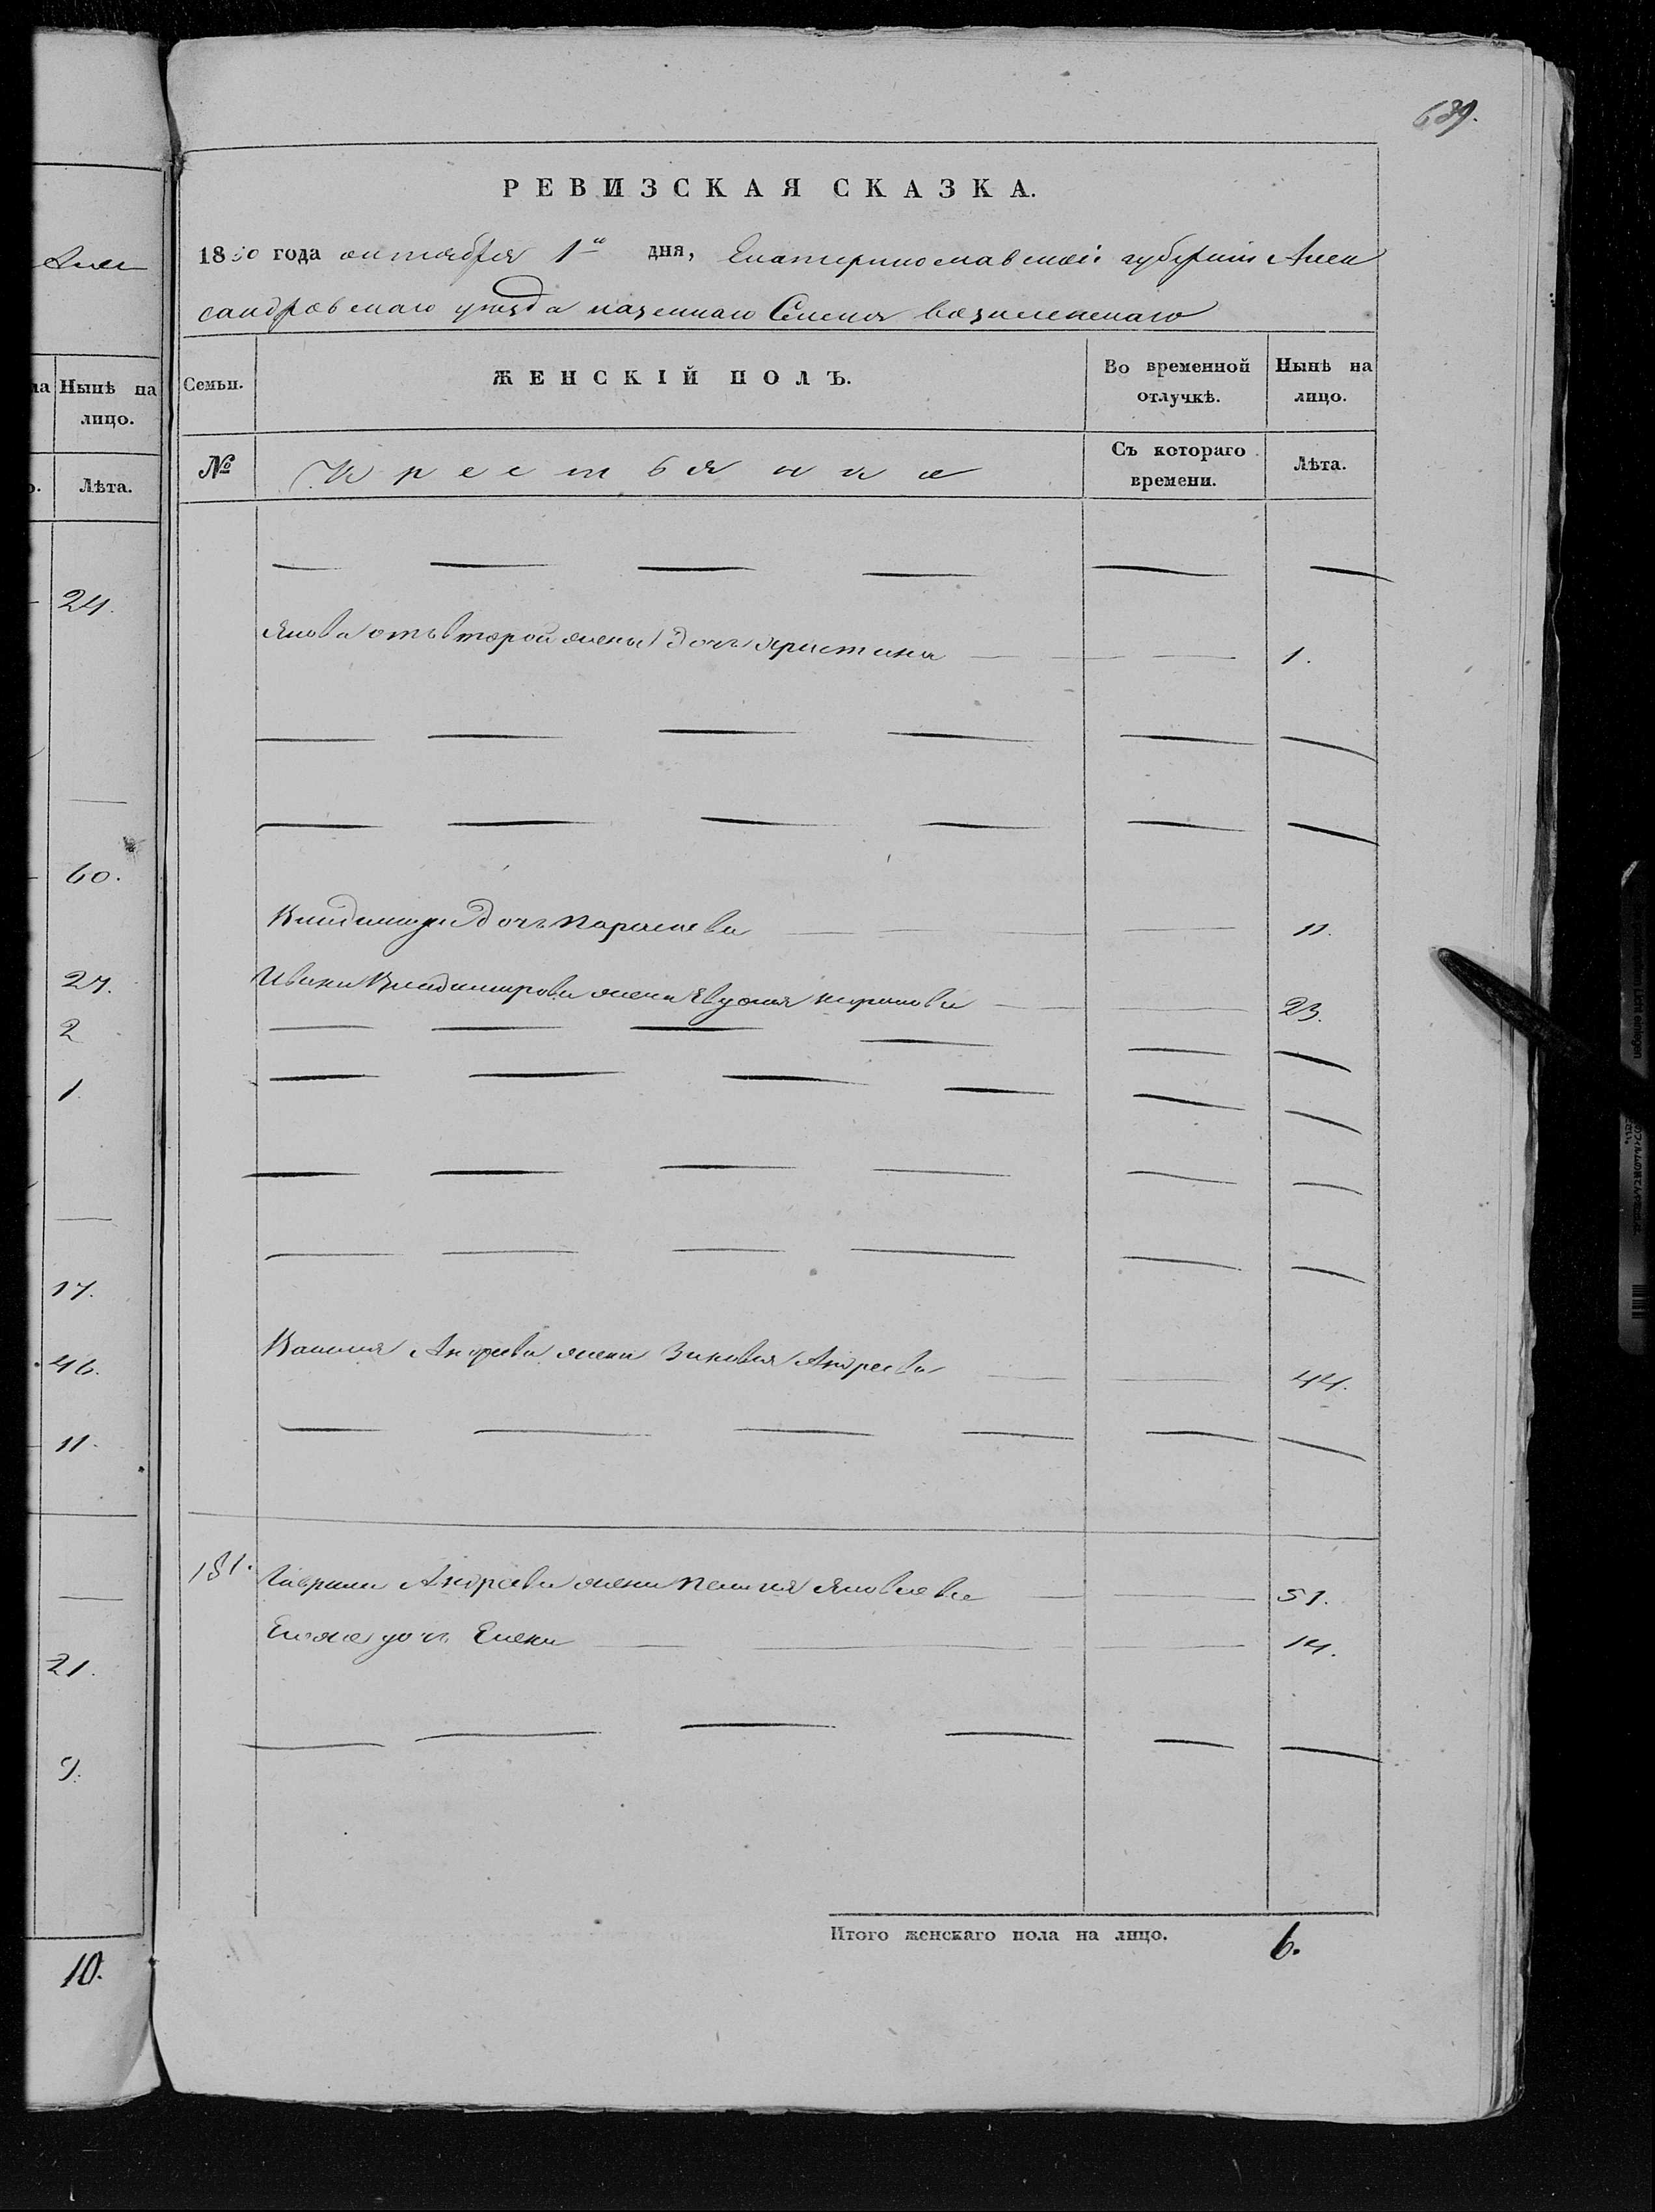 689.
РЕВИЗСКАЯ СКАЗКА.
1850 года октября 1го дня, Екатеринославской губерніи Алек
сандровскаго уезда казеннаго Селенія Вознесенскаго
Семьи.
ЖЕНСКІЙ ПОЛЪ.
Во временной отлучкѣ.
Нынѣ на лицо.
№
Крестьянка
Съ котораго времени.
Лѣта.
Якова отъ второй жены дочь Христина 1.
Владимира дочь Параскева 11.
Ивана Владимирова жена Евдокия 23.
Андреева жена Зиновия Андреева 44.
181. Гаврила Андреева жена Пелагия Яковлева 51.
Его же дочь Елена 14.
Итого женскаго пола на лицо. 6.
Алек
на Нынѣ на
лицо.
Лѣта.
24.
60.
27.
2
1
17.
46.
11.
21.
9.
10.